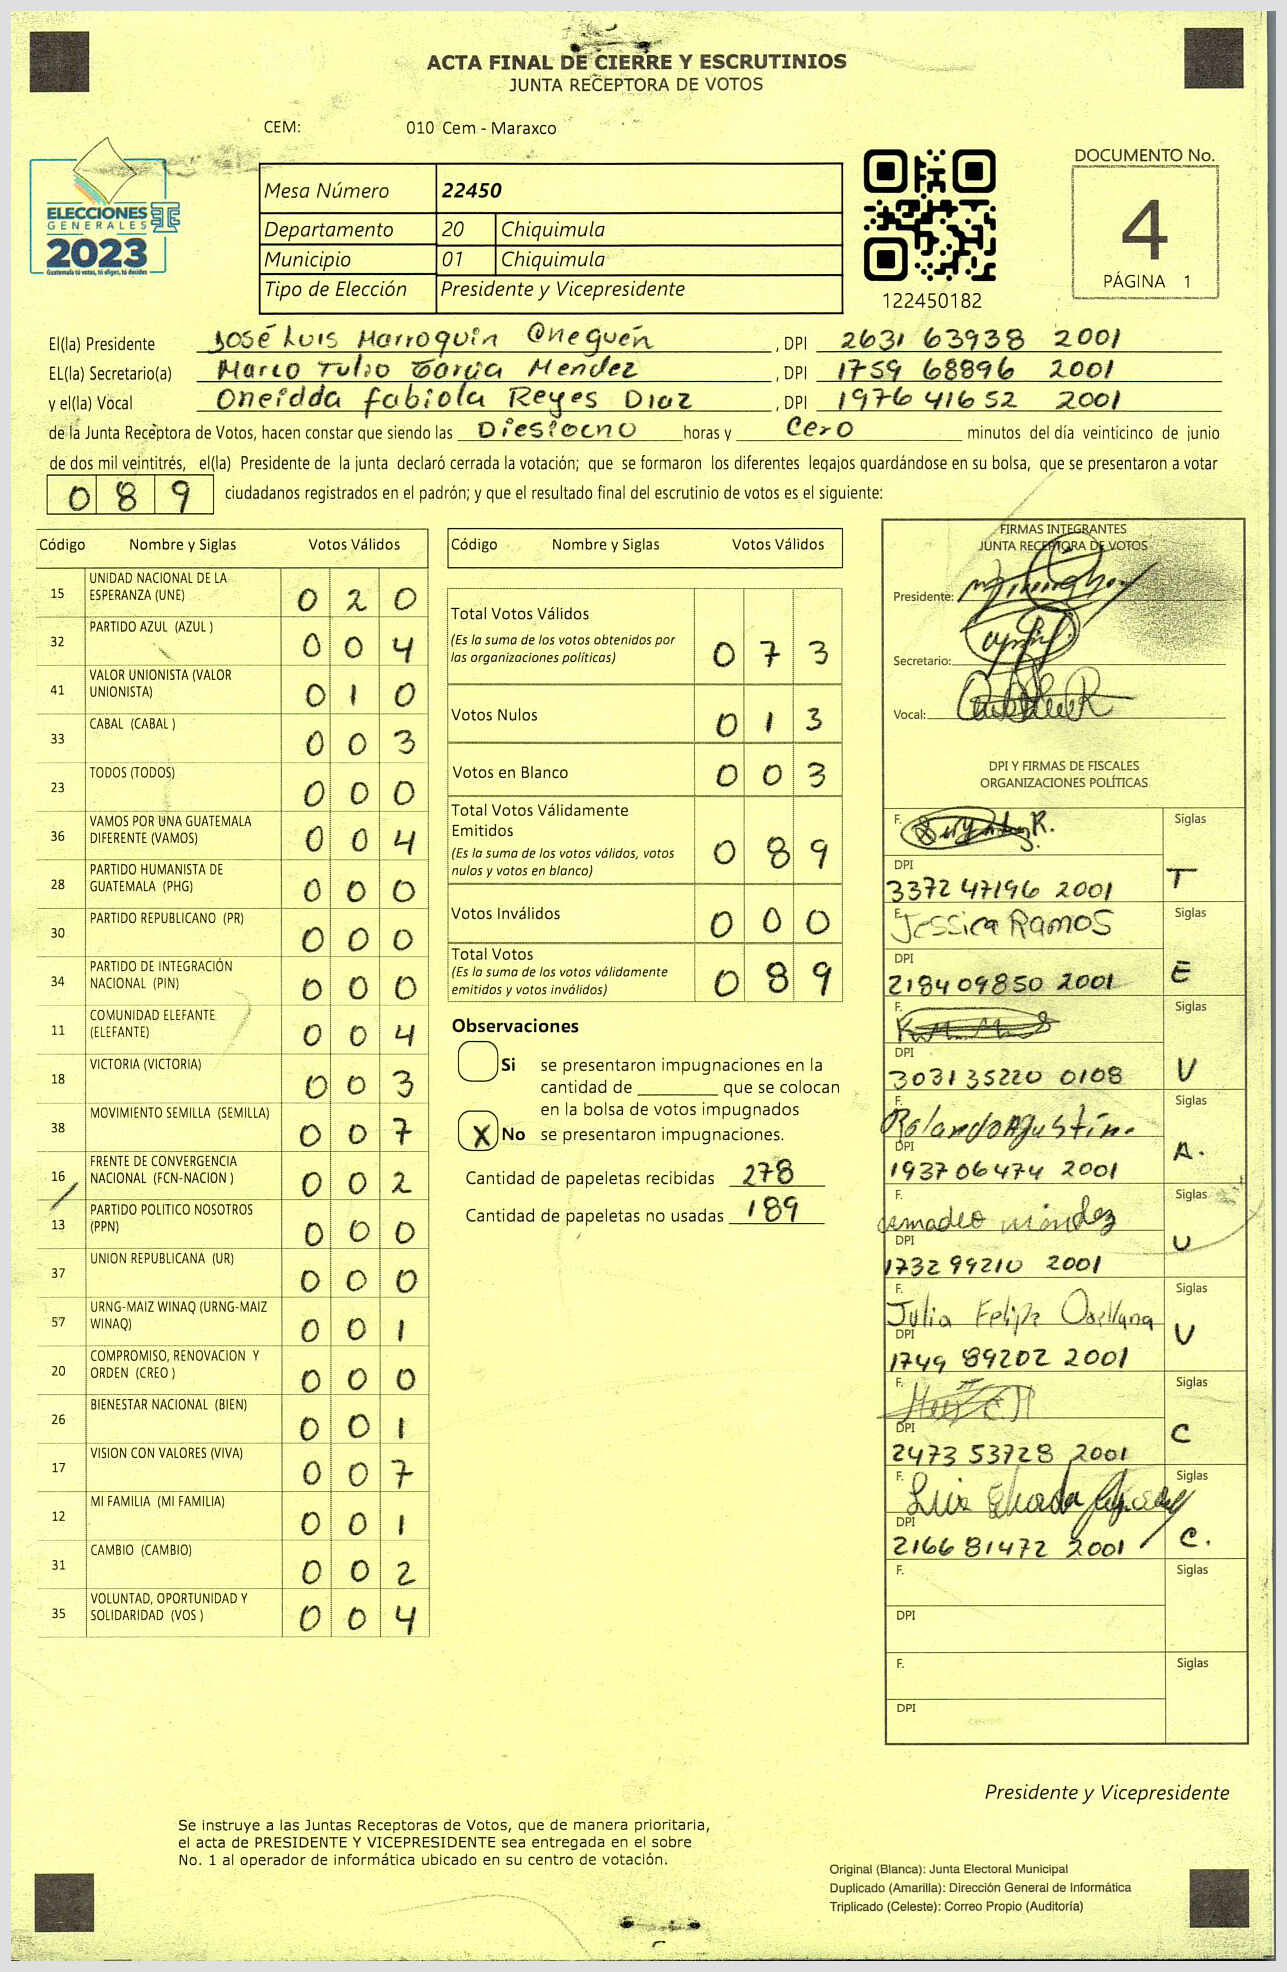 ACTA FINAL DE CIERRE Y ESCRUTINIOS
JUNTA RECEPTORA DE VOTOS
CEM: 010 Cem - Maraxco
ELECCIONES
GENERALES
2023
Guatemala tú votas, tú eliges, tú decides
Mesa Número 22450
Departamento 20 Chiquimula
Municipio 01 Chiquimula
Tipo de Elección Presidente y Vicepresidente
122450182
DOCUMENTO No.
4
PÁGINA 1
El(la) Presidente José Luis Marroquin Oneguén , DPI 2631 63938 2001
EL(la) Secretario(a) Marco Tulio Garcia Mendez , DPI 1759 68896 2001
y el(la) Vocal Oneidda Fabiola Reyes Diaz , DPI 1976 41652 2001
de la Junta Receptora de Votos, hacen constar que siendo las Diesiocno horas y Cero minutos del día veinticinco de junio
de dos mil veintitrés, el(la) Presidente de la junta declaró cerrada la votación; que se formaron los diferentes legajos guardándose en su bolsa, que se presentaron a votar
089 ciudadanos registrados en el padrón; y que el resultado final del escrutinio de votos es el siguiente:
Código Nombre y Siglas Votos Válidos
15 UNIDAD NACIONAL DE LA ESPERANZA (UNE) 0 2 0
32 PARTIDO AZUL (AZUL ) 0 0 4
41 VALOR UNIONISTA (VALOR UNIONISTA) 0 1 0
33 CABAL (CABAL ) 0 0 3
23 TODOS (TODOS) 0 0 0
36 VAMOS POR UNA GUATEMALA DIFERENTE (VAMOS) 0 0 4
28 PARTIDO HUMANISTA DE GUATEMALA (PHG) 0 0 0
30 PARTIDO REPUBLICANO (PR) 0 0 0
34 PARTIDO DE INTEGRACIÓN NACIONAL (PIN) 0 0 0
11 COMUNIDAD ELEFANTE (ELEFANTE) 0 0 4
18 VICTORIA (VICTORIA) 0 0 3
38 MOVIMIENTO SEMILLA (SEMILLA) 0 0 7
16 FRENTE DE CONVERGENCIA NACIONAL (FCN-NACION ) 0 0 2
13 PARTIDO POLITICO NOSOTROS (PPN) 0 0 0
37 UNION REPUBLICANA (UR) 0 0 0
57 URNG-MAIZ WINAQ (URNG-MAIZ WINAQ) 0 0 1
20 COMPROMISO, RENOVACION Y ORDEN (CREO ) 0 0 0
26 BIENESTAR NACIONAL (BIEN) 0 0 1
17 VISION CON VALORES (VIVA) 0 0 7
12 MI FAMILIA (MI FAMILIA) 0 0 1
31 CAMBIO (CAMBIO) 0 0 2
35 VOLUNTAD, OPORTUNIDAD Y SOLIDARIDAD (VOS ) 0 0 4
Código Nombre y Siglas Votos Válidos
Total Votos Válidos
(Es la suma de los votos obtenidos por
las organizaciones políticas) 0 7 3
Votos Nulos 0 1 3
Votos en Blanco 0 0 3
Total Votos Válidamente
Emitidos
(Es la suma de los votos válidos, votos
nulos y votos en blanco) 0 8 9
Votos Inválidos 0 0 0
Total Votos
(Es la suma de los votos válidamente
emitidos y votos inválidos) 0 8 9
Observaciones
Si se presentaron impugnaciones en la
cantidad de ________ que se colocan
en la bolsa de votos impugnados
X No se presentaron impugnaciones.
Cantidad de papeletas recibidas 278
Cantidad de papeletas no usadas 189
FIRMAS INTEGRANTES
JUNTA RECEPTORA DE VOTOS
Presidente:
Secretario:
Vocal:
DPI Y FIRMAS DE FISCALES
ORGANIZACIONES POLÍTICAS
F. Siglas
DPI
3372 47196 2001 T
F. Jessica Ramos Siglas
DPI
2184 09850 2001 E
F. Siglas
DPI
3031 35220 0108 V
F. Rolando Agustín. Siglas
DPI
1937 06474 2001 A.
F. amadeo méndez Siglas
DPI
1732 99210 2001 U
F. Julia Felipe Orellana Siglas
DPI
1749 89202 2001 V
F. Siglas
DPI
2473 53728 2001 C
F. Luis Siglas
DPI
2166 81472 2001 C.
F. Siglas
DPI
F. Siglas
DPI
Presidente y Vicepresidente
Se instruye a las Juntas Receptoras de Votos, que de manera prioritaria,
el acta de PRESIDENTE Y VICEPRESIDENTE sea entregada en el sobre
No. 1 al operador de informática ubicado en su centro de votación.
Original (Blanca): Junta Electoral Municipal
Duplicado (Amarilla): Dirección General de Informática
Triplicado (Celeste): Correo Propio (Auditoría)